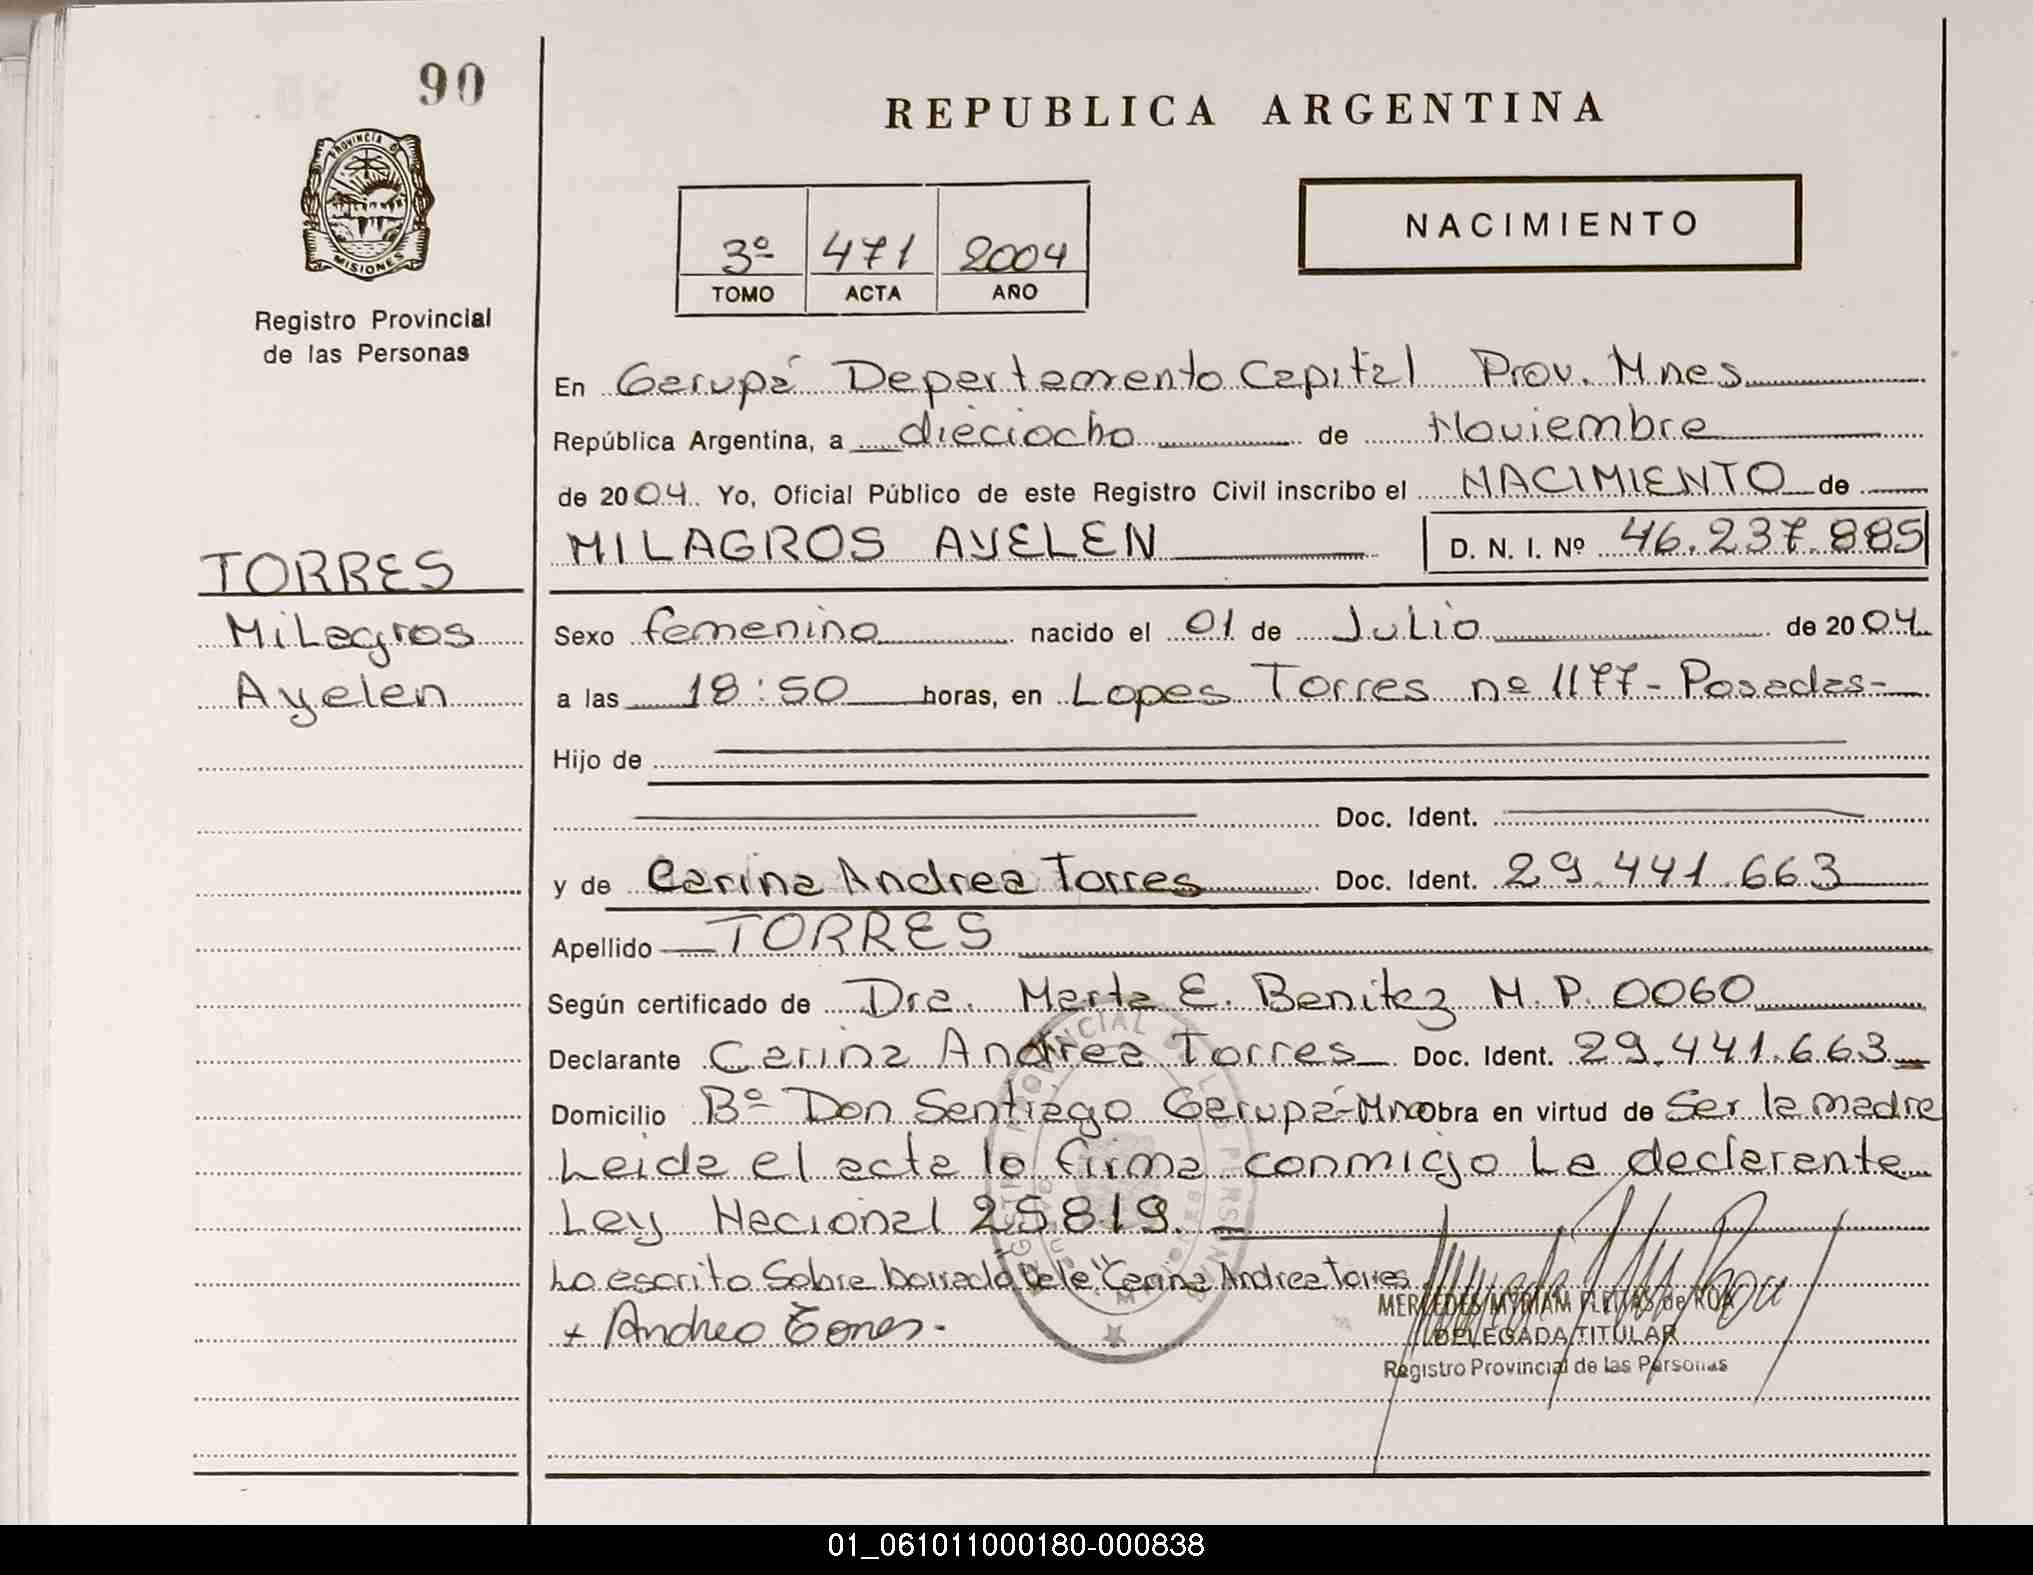 90
REPUBLICA ARGENTINA
PROVINCIA DE
MISIONES
NACIMIENTO
3º 471 2004
TOMO ACTA AÑO
Registro Provincial
de las Personas
En Garupá Departamento Capital Prov. Mnes
República Argentina, a dieciocho de Noviembre
de 2004. Yo, Oficial Público de este Registro Civil inscribo el NACIMIENTO de
MILAGROS AYELEN D. N. I. Nº 46.237.885
TORRES
Milagros
Ayelen
Sexo femenino nacido el 01 de Julio de 2004
a las 18:50 horas, en Lopes Torres nº 1177 - Posadas -
Hijo de
Doc. Ident.
y de Carina Andrea Torres Doc. Ident. 29.441.663
Apellido TORRES
Según certificado de Dra. Marta E. Benitez M.P. 0060
Declarante Carina Andrea Torres Doc. Ident. 29.441.663
Domicilio Bº Don Santiago Garupá - Mnes Obra en virtud de Ser la madre
Leida el acta la firma conmigo La declarante
Ley Nacional 25819.
Lo escrito Sobre borrado Vale "Carina Andrea Torres
+ Andrea Torres.
MERCEDES MYRIAM FLEITAS de ROA
DELEGADA TITULAR
Registro Provincial de las Personas
01_061011000180-000838